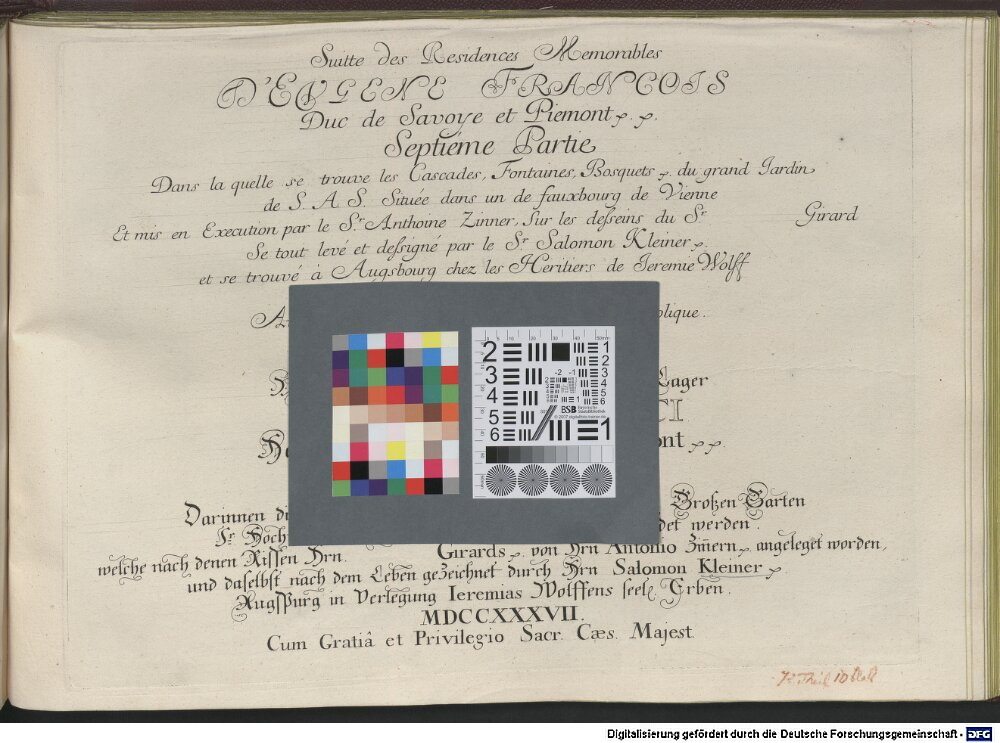 Suitte des Residences Memorables
D'EUGENE FRANCOIS
Duc de Savoye et Piemont
Septiéme Partie
Dans la quelle se trouve les Cascades, Fontaines, Bosquets du grand Jardin
de S. A. S. Située dans un de fauxbourg de Vienne
Et mis en Execution par le Sr. Anthoine Zinner, Sur les desseins du Sr Girard
Se tout levé et dessigné par le Sr. Salomon Kleiner
et se trouvé à Augsbourg chez les Heritiers de Ieremie Wolff
plique.
Lager
CI
ont
Darinnen Großen Garten
Sr. Hoch det werden.
welche nach denen Rissen Hrn. Girards von Hrn Antonio angeleget worden,
und daselbst nach dem Leben gezeichnet durch Hrn Salomon Kleiner
Augspurg in Verlegung Ieremias Wolffens seel. Erben.
MDCCXXXVII.
Cum Gratiâ et Privilegio Sacr. Cæs. Majest.
2 1
3 2
4 3
5 4
6 5
6
-2 -1
BSB
1
Digitalisierung gefördert durch die Deutsche Forschungsgemeinschaft - DFG